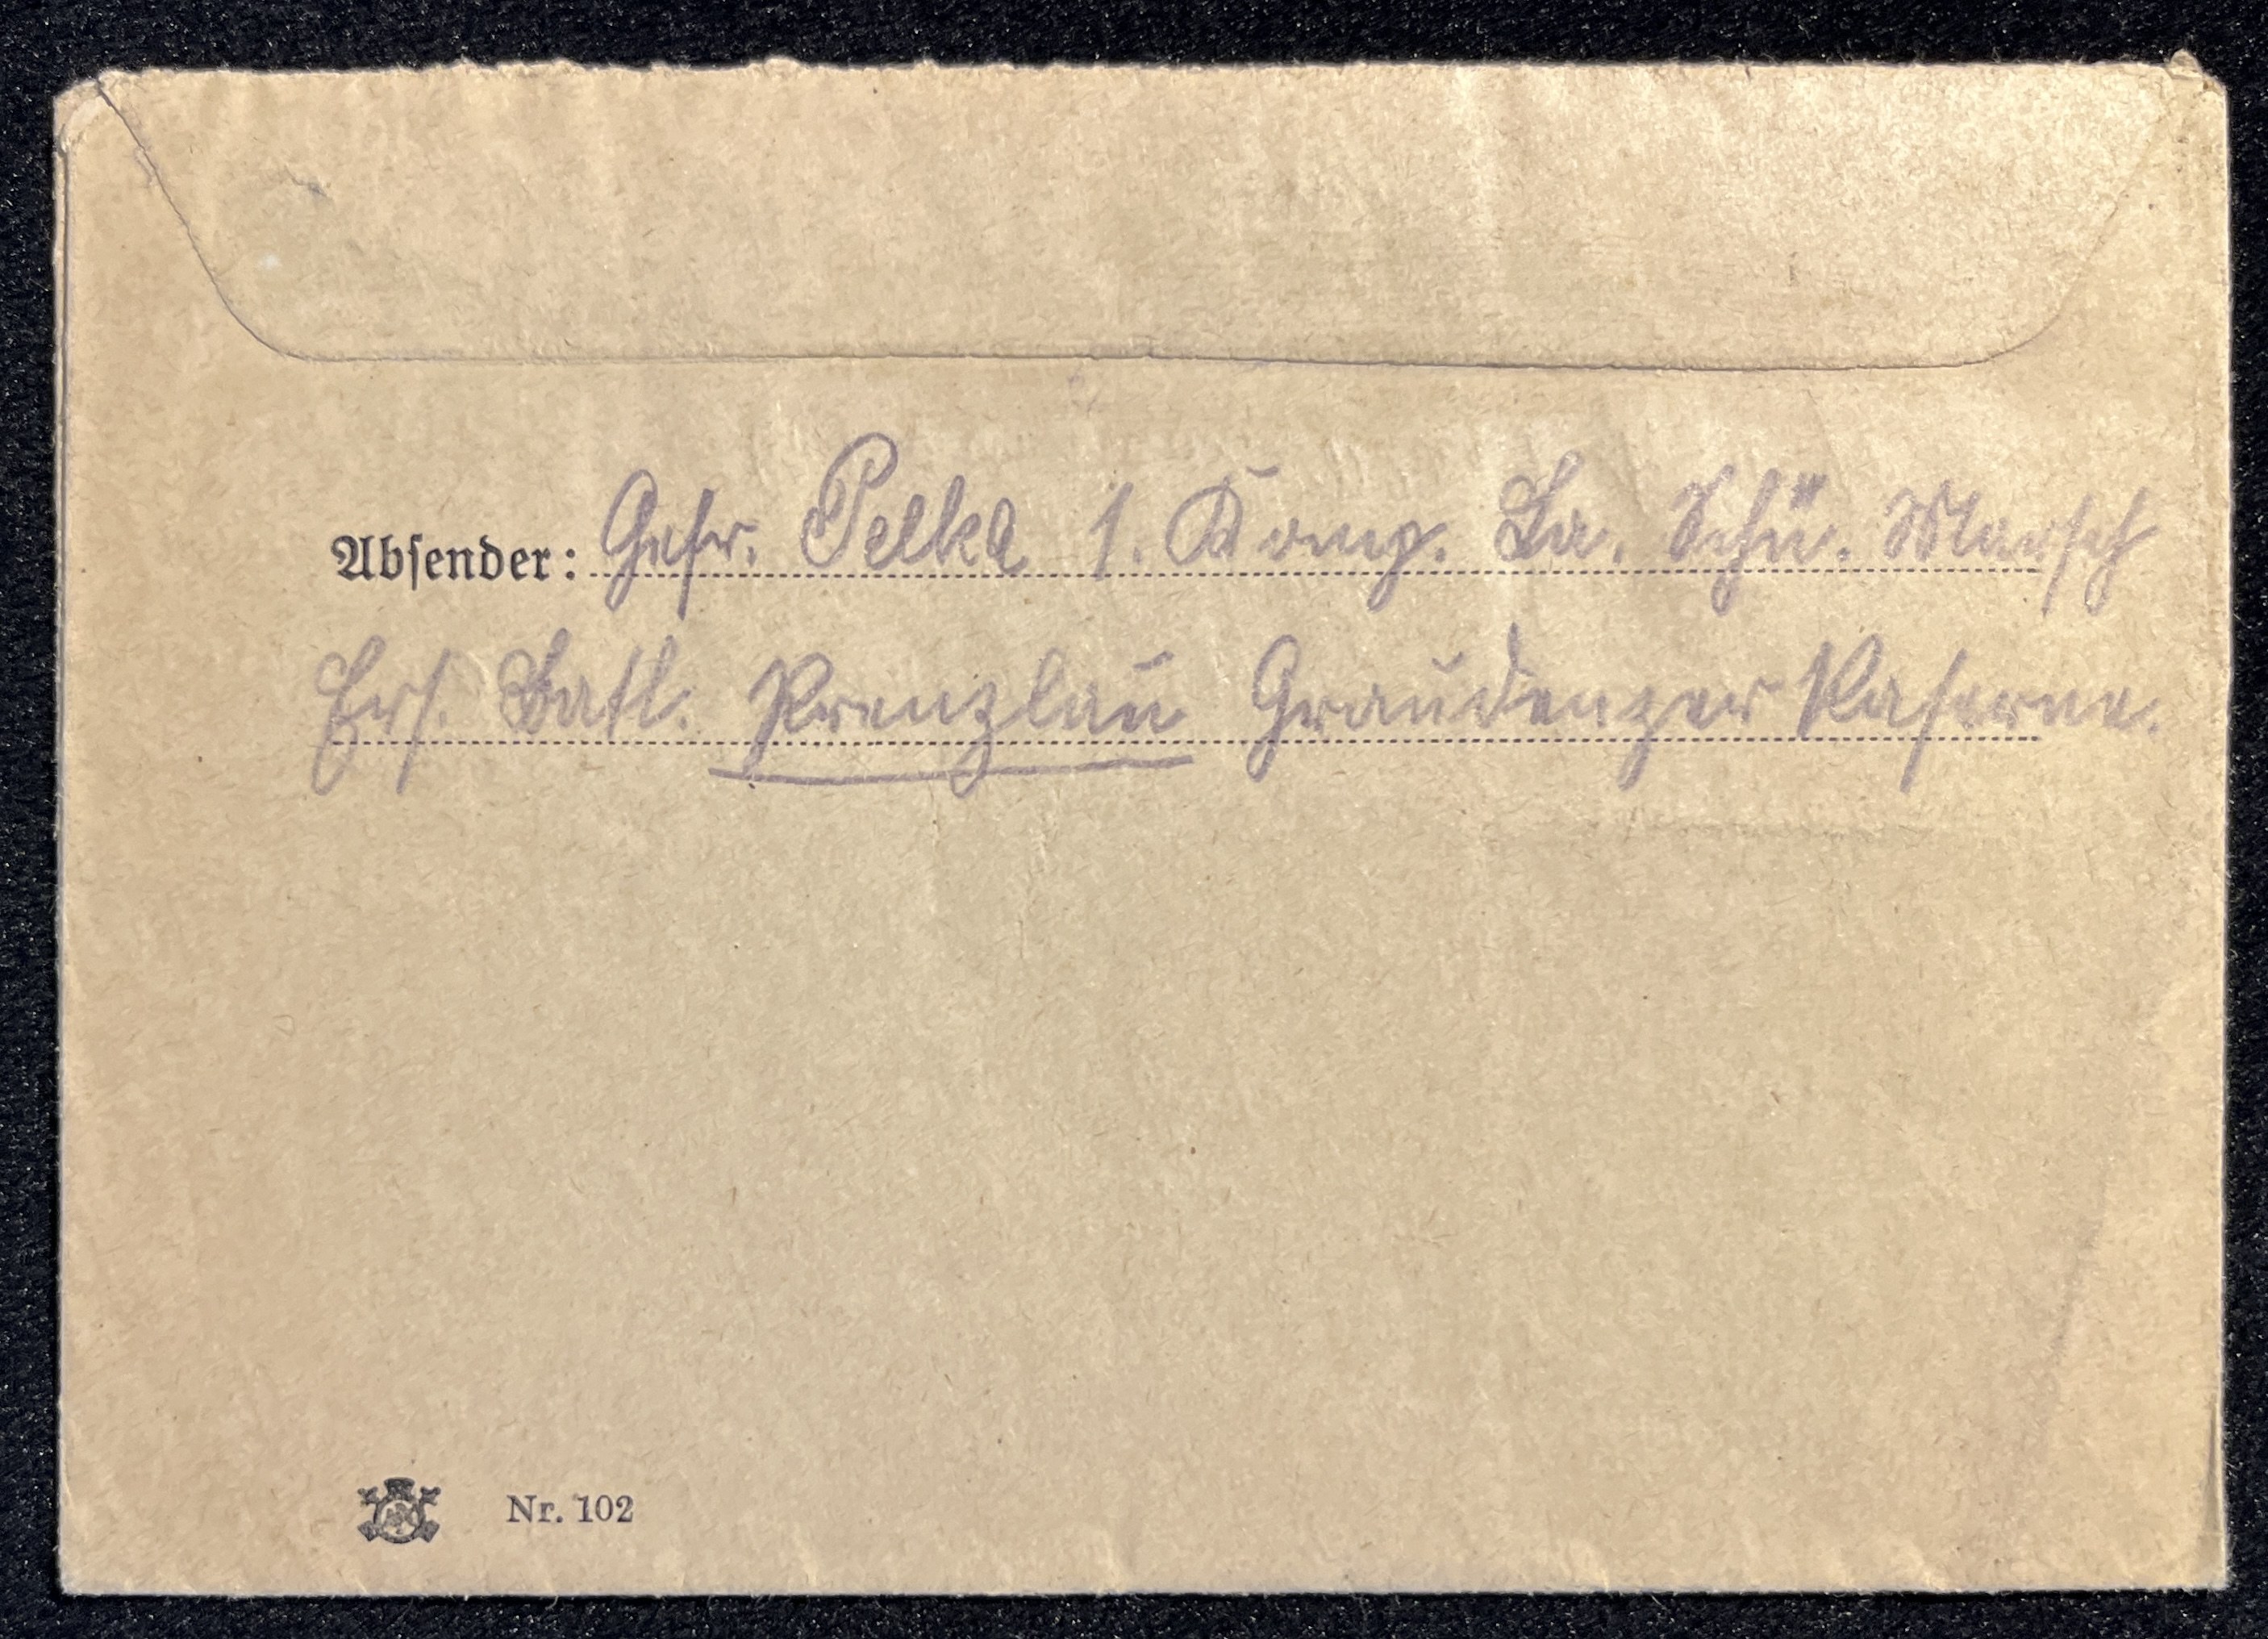 Absender: Gefr. Pelka 1. Komp. La. Schü. Marsch
Ers. Batl. Prenzlau Graudenzer Kaserne.
Nr. 102